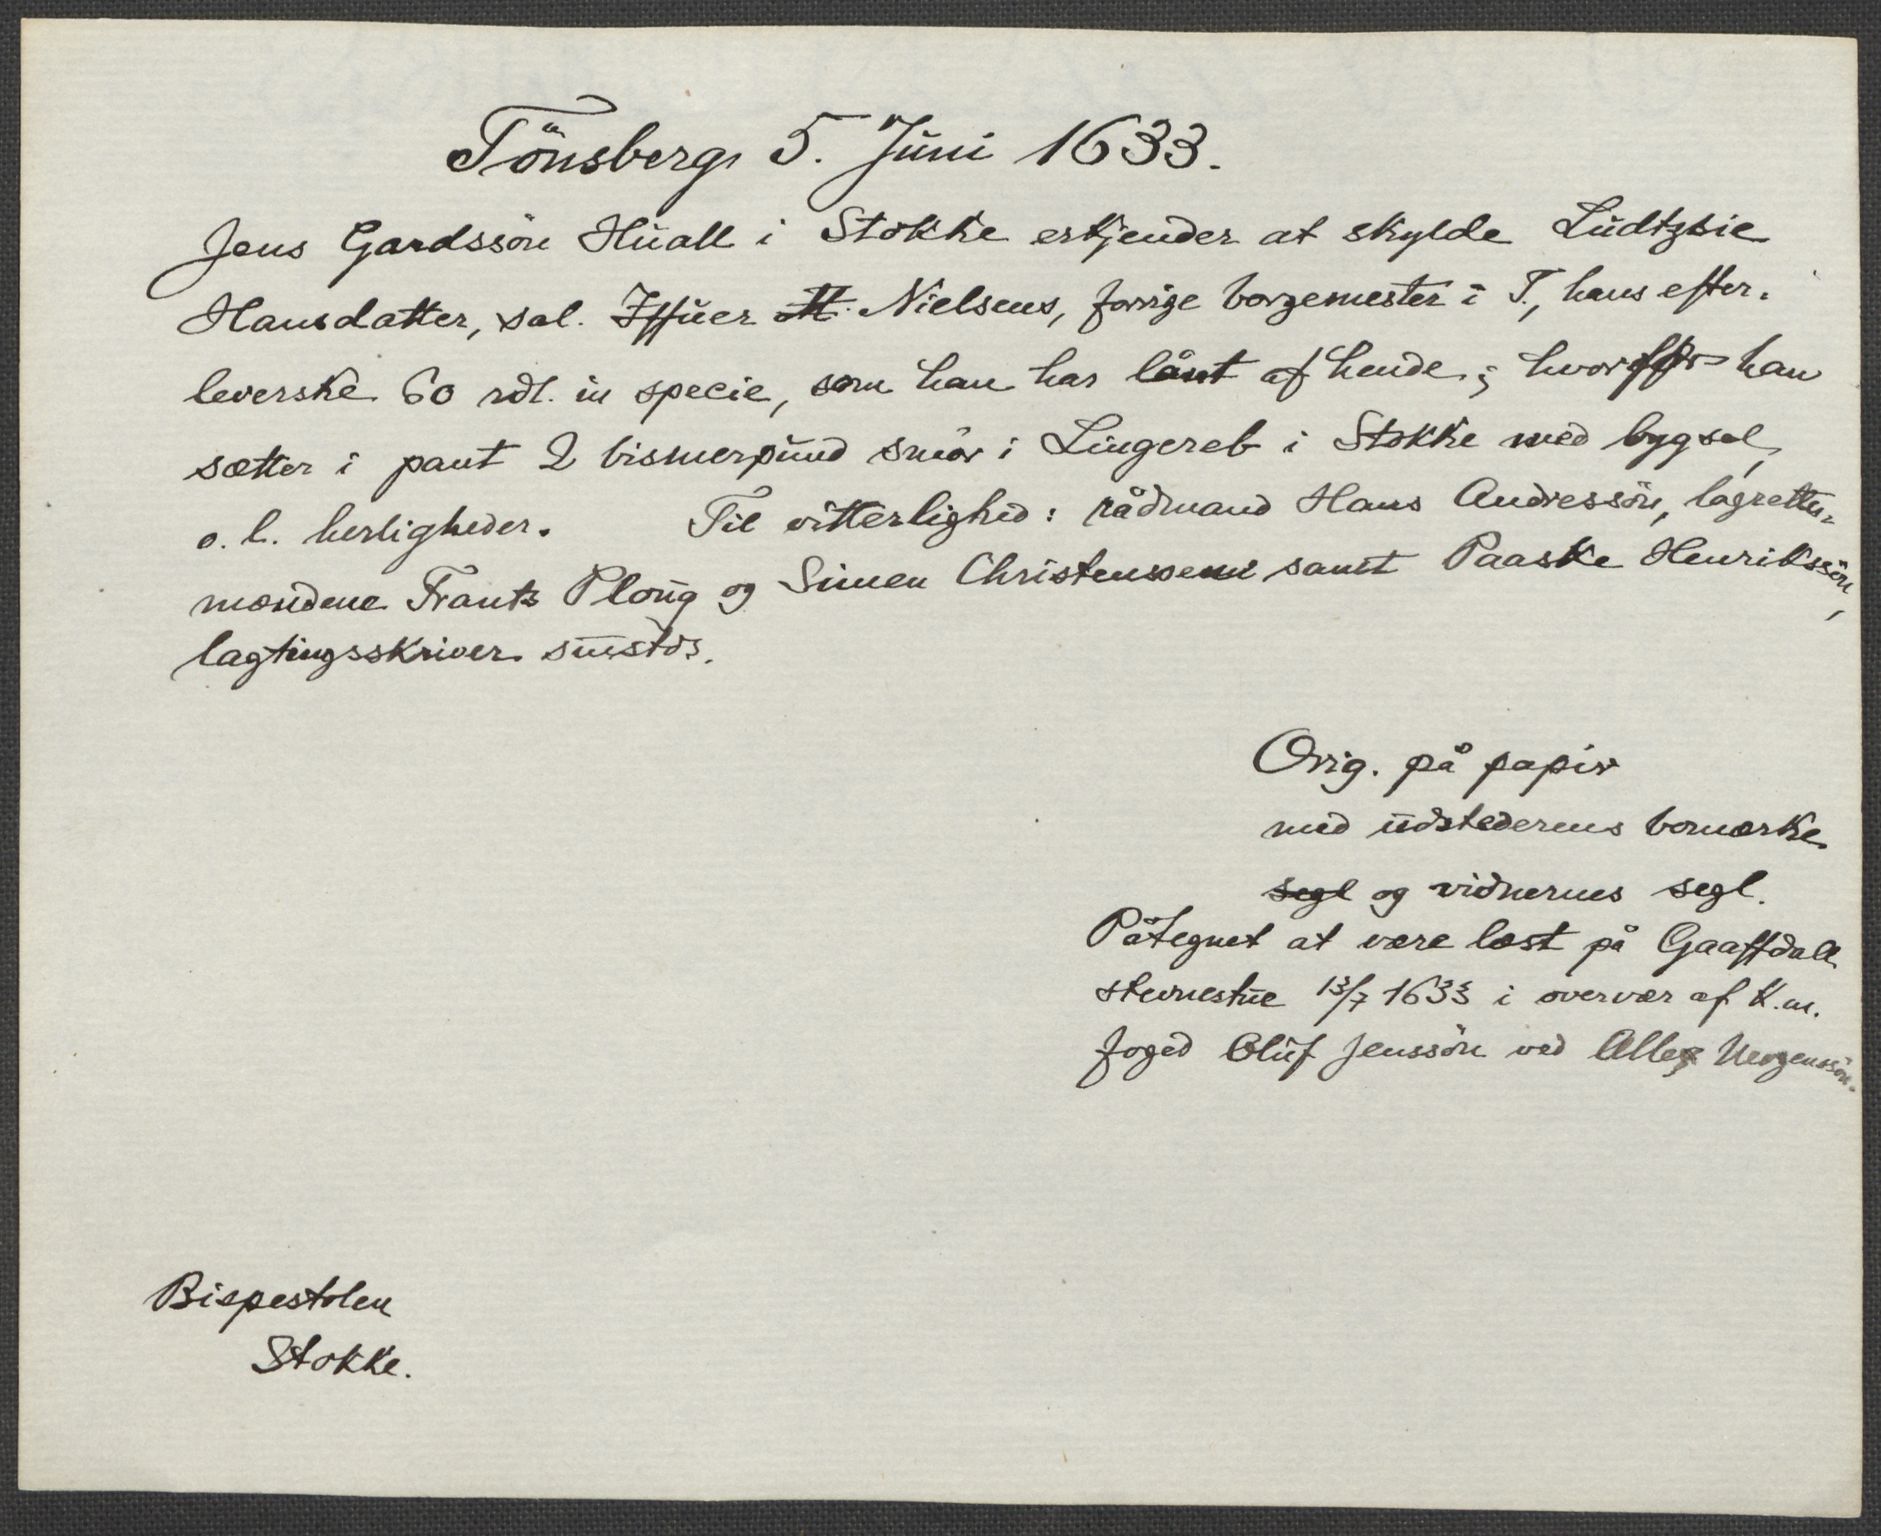 Tönsberg 5. Juni 1633.
Jens Gardssön Huall i Stokke erkjender at skylde Ludtzsie
Hansdatter, sal. Iffuer Nielsens, forrige borgemester i T, hans efter-
leverske 60 rdl. in specie, som han har lånt af hende; hvorfor han
sætter i pant 2 bismerpund smör i Lingereb i Stokke med bygsel,
o. l. herligheder. Til vitterlighed: rådmand Hans Andressön, lagrettes-
mændene Frants Ploug og Simen Christensen samt Paaske Henrikssön,
lagtingsskriver sunstds.
Orig. på papir
med udstederens bomærke
segl og vidnernes segl.
Påtegnet at være læst på Gaaffdall
stevnestue 13/7 1633 i overvær af K.m.
foged Oluf Jenssön ved
Bispestolen
Stokke.